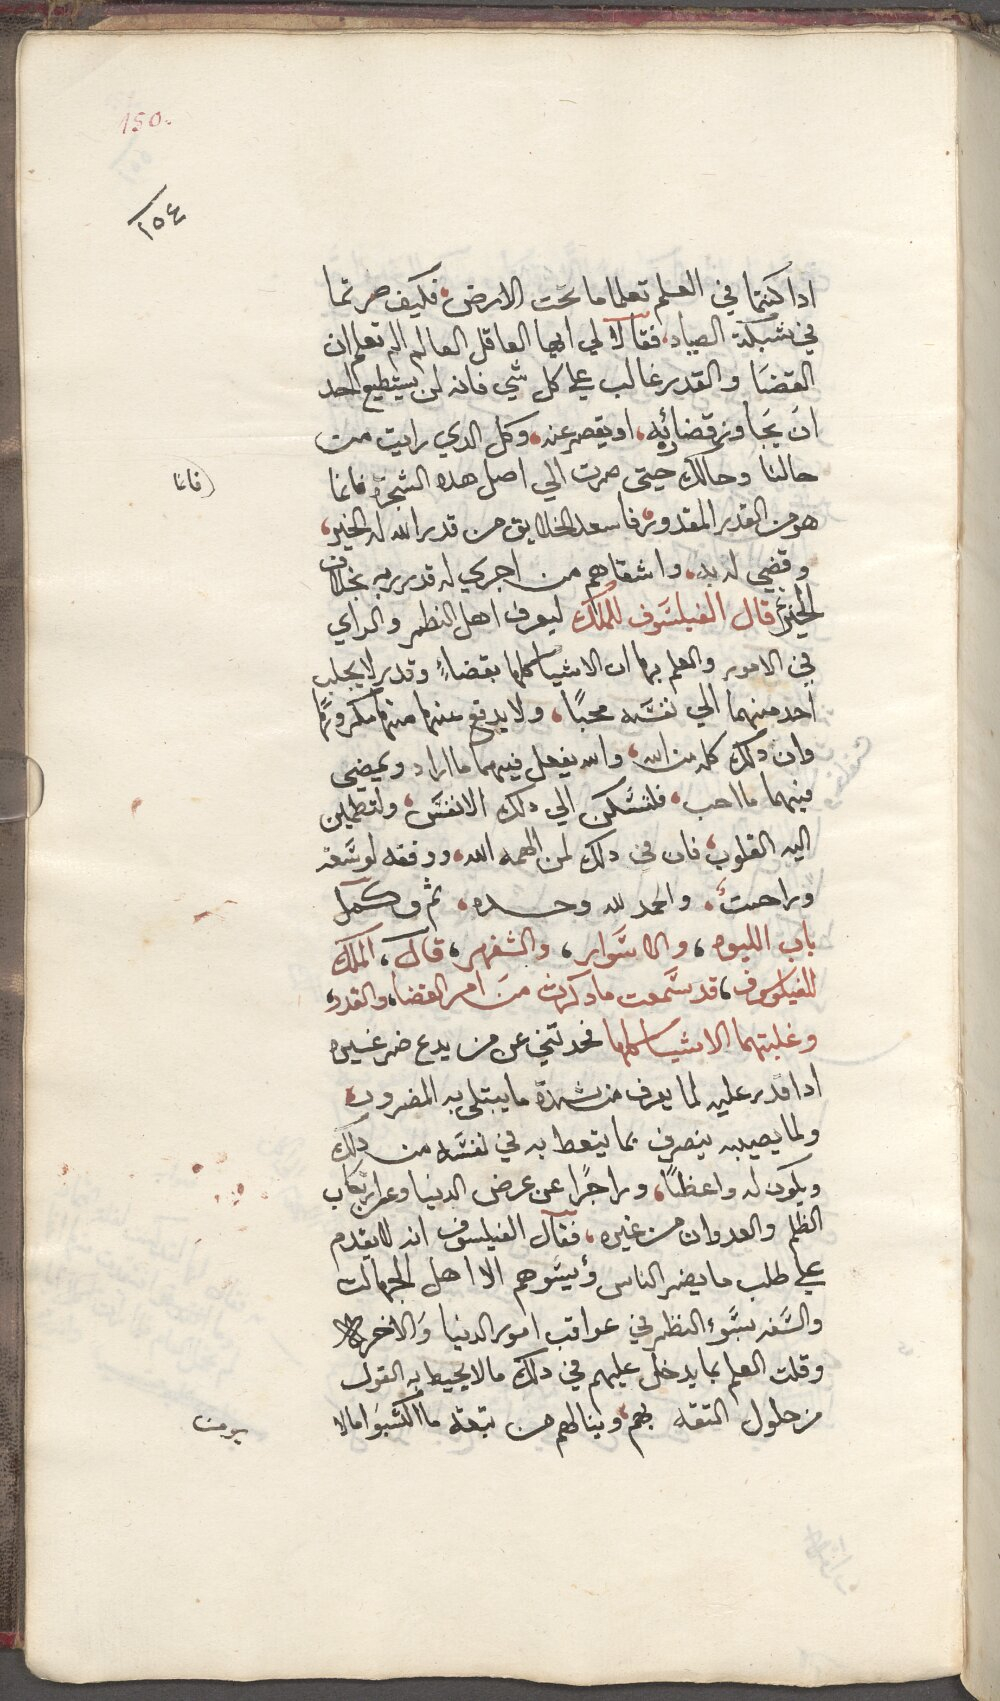 150.
١٥٤
ادا كنتما في العلم تعلما ما تحت الارض، فكيف صرتما
في شبكة الصياد، فقالا لي ايها العاقل العالم الم تعلم ان
القضا والقدر غالب علي كل شي فانه لن يستطيع احد
ان يجاوز قضائيه، او يقصر عنه، وكل الدي رايت من
حالنا وحالك حيتى صرت الي اصل هده الشجرة فانما
فانما
هو من القدر المقدور، فاسعد الخلايق من قدر الله له الخير،
وقضي له به، واشقاهم من اجري له قدر ربه بخلاف
الخير، قال الفيلسوف للملك ليعرف اهل النظر والراي
في الامور والعلم بها ان الاشيا كلها بقضاء وقدر لا يجلب
احد منهما الي نفسه محبًا، ولا يدفع عنها منهما مكروهًا
وان دلك كله من الله، والله يفعل فيهما ما اراد ويمضي
فيهما ما احب، فلتسكن الي دلك الانفس، ولتطمين
اليه القلوب، فان في دلك لمن الهمه الله، ووفقه لوسعة
وراحت، والحمد لله وحده، ثم وكمل
باب اللبوه، والاسوار، والشغهر، قال، الملك
للفيلسوف، قد سمعت ما دكرت من امر القضا، والقدر،
وغلبتهما الاشيا كلها فحدتني عن من يدع ضر غيره
ادا قدر عليه لما يعرف من شدة ما يبتلي به المضرور،
ولما يصيبه ينصرف بما يتعظ به في نفسه من دلك
ويكون له واعظًا، وزاجرًا عن عرض الدنيا وعن ارتكاب
الظلم والعدوان من غيره، فقال الفيلسوف انه لا يقدم
علي طلب ما يضر الناس ويسوهم الا اهل الجهالت
والسفه بسوء النظر في عواقب امور الدنيا والاخره
وقلت العلم بما يدخل عليهم في دلك ما لا يحيط به القول
من حلول النقه بهم، وينالهم من تبعة ما اكتسبوا ما لا
يومن